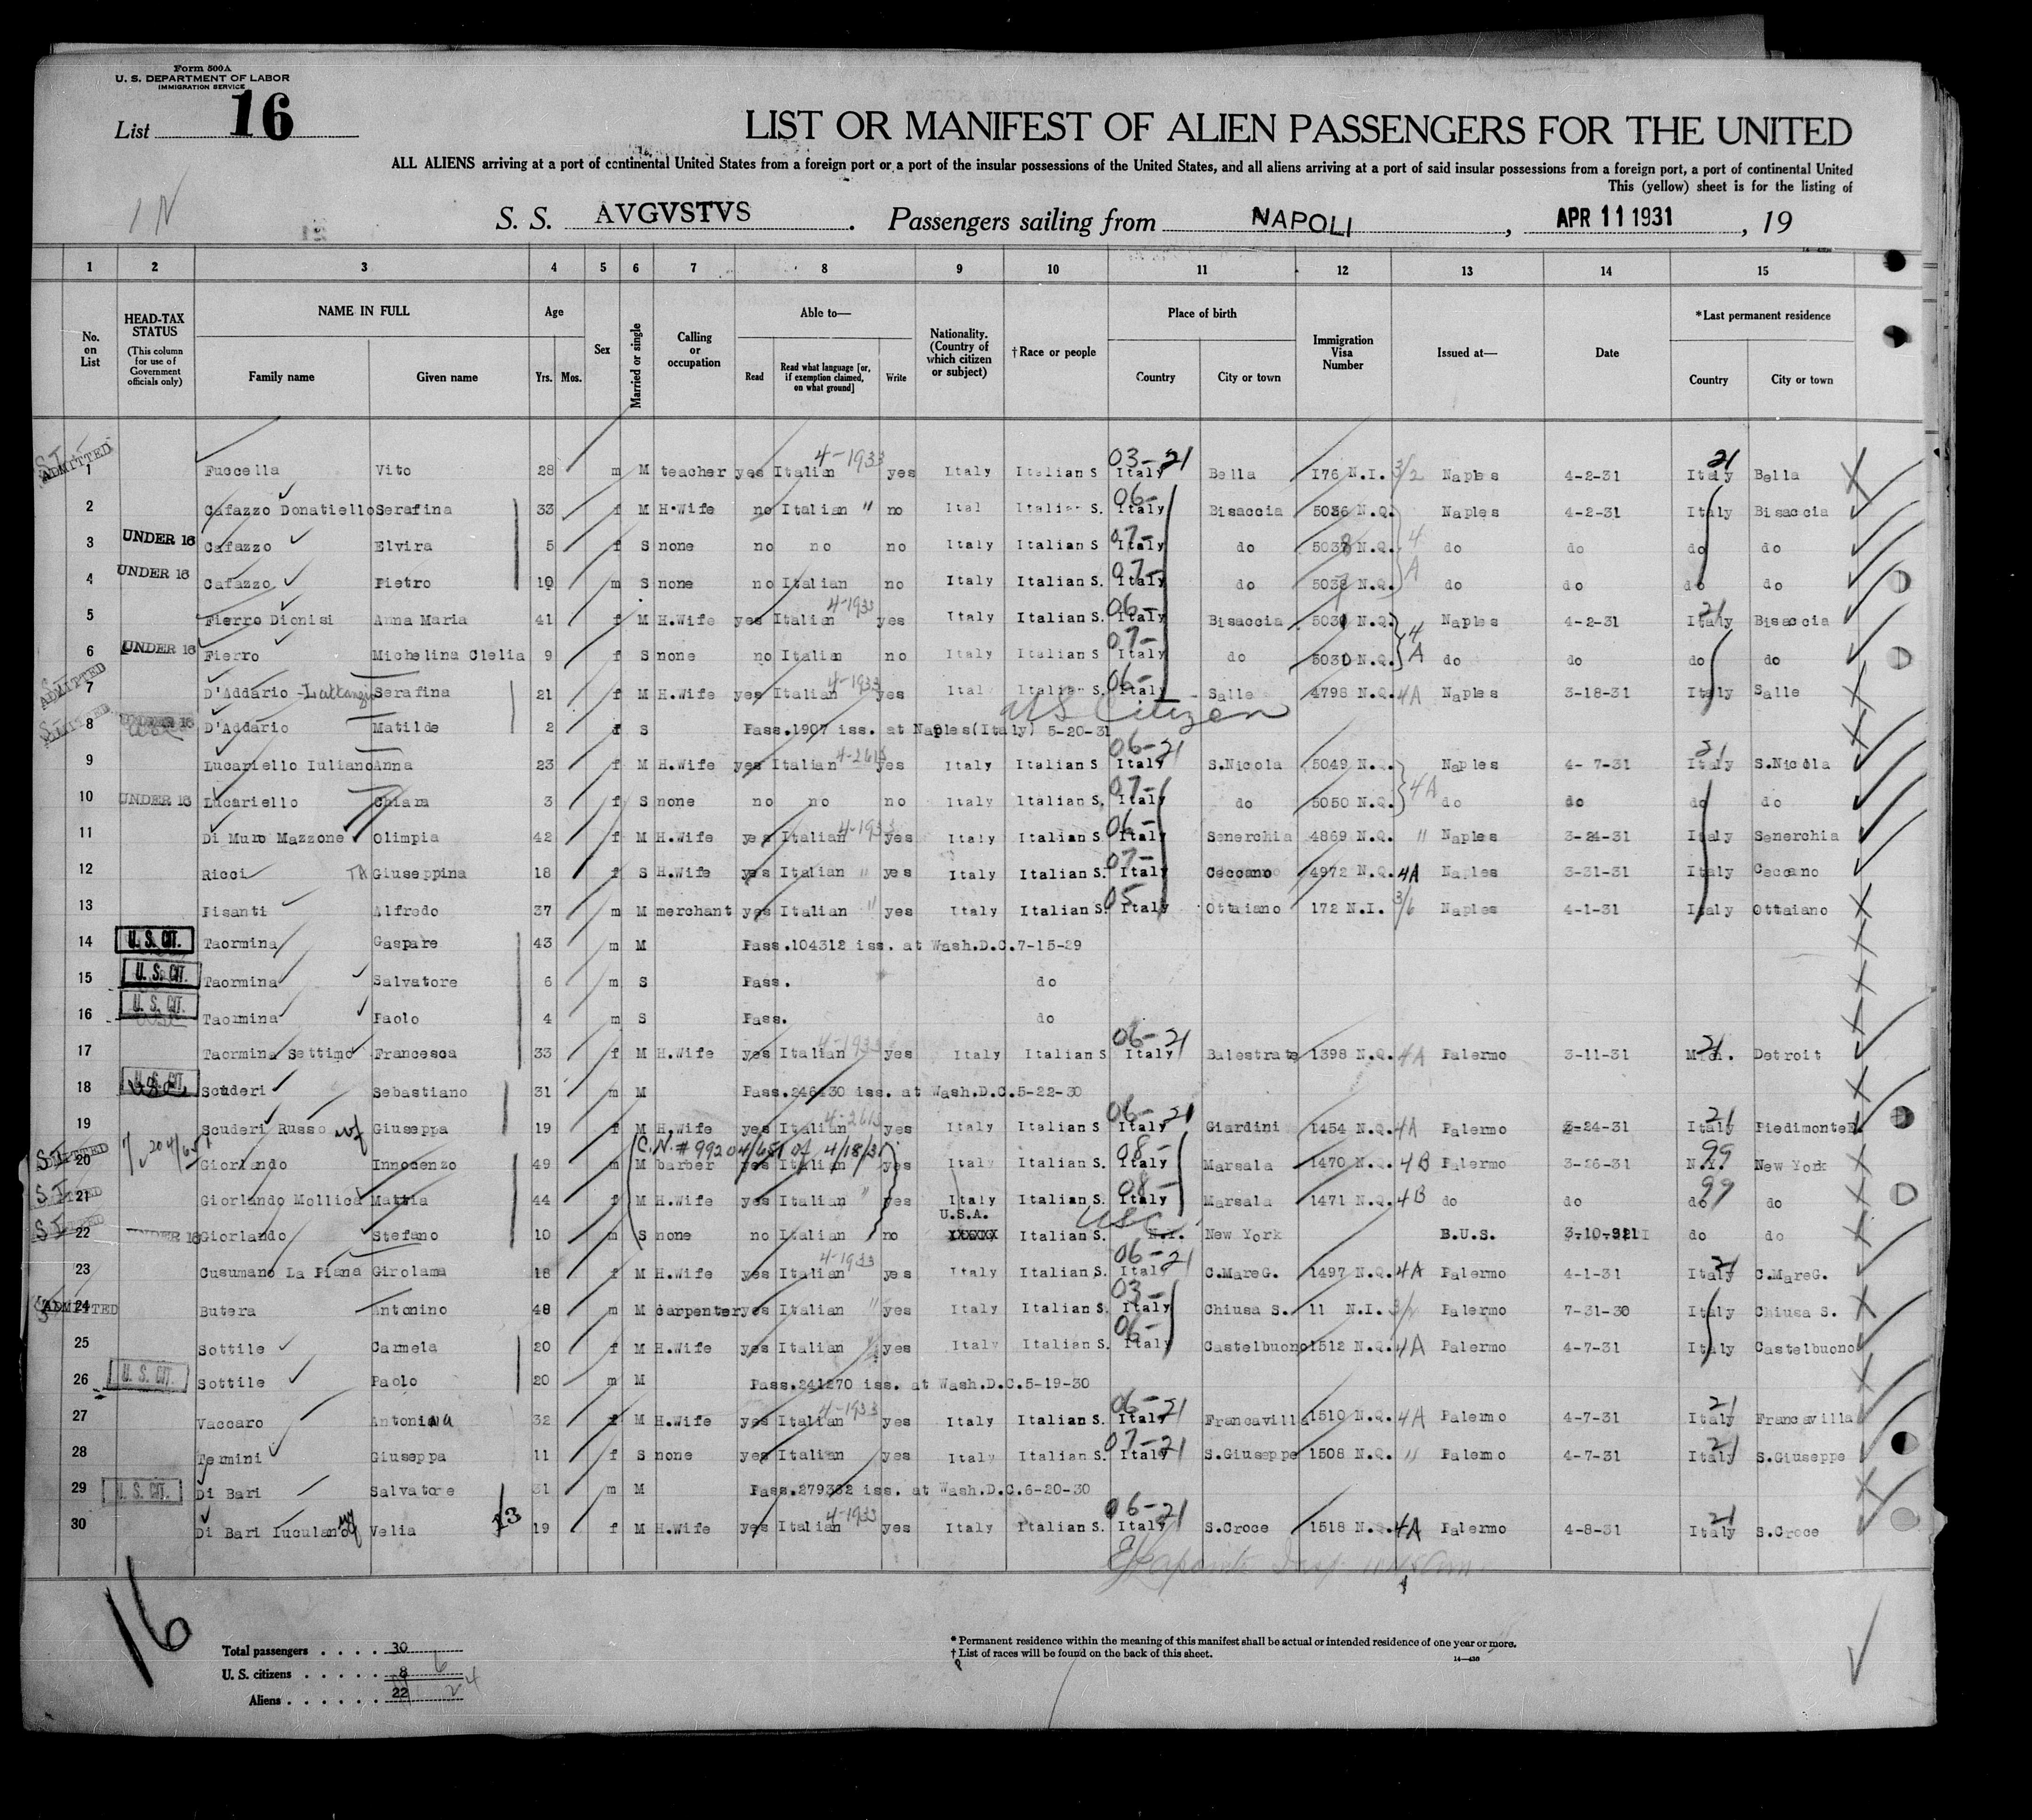 Form 500A
U. S. DEPARTMENT OF LABOR
IMMIGRATION SERVICE
List 16
LIST OR MANIFEST OF ALIEN PASSENGERS FOR THE UNITED
ALL ALIENS arriving at a port of continental United States from a foreign port or a port of the insular possessions of the United States, and all aliens arriving at a port of said insular possessions from a foreign port, a port of continental United
This (yellow) sheet is for the listing of
S. S. AVGVSTVS. Passengers sailing from NAPOLI, APR 11 1931, 19
1 2 3 4 5 6 7 8 9 10 11 12 13 14 15
No. on List
HEAD-TAX STATUS (This column for use of Government officials only)
NAME IN FULL Family name Given name
Age Yrs. Mos.
Sex
Married or single
Calling or occupation
Able to— Read Read what language [or, if exemption claimed, on what ground] Write
Nationality. (Country of which citizen or subject)
† Race or people
Place of birth Country City or town
Immigration Visa Number
Issued at—
Date
*Last permanent residence Country City or town
ADMITTED 1 Fuccella Vito 28 m M teacher yes Italian 4-1933 yes Italy Italian S 03-21 Italy Bella 176 N.I. 3/2 Naples 4-2-31 21 Italy Bella
2 Cafazzo Donatiello Serafina 33 f M H.Wife no Italian " no Ital Italian S. 06- Italy Bisaccia 5036 N.Q. Naples 4-2-31 Italy Bisaccia
3 UNDER 16 Cafazzo Elvira 5 f S none no no no Italy Italian S 07- Italy do 5038 N.Q. 4 A do do do do
4 UNDER 16 Cafazzo Pietro 10 m S none no Italian no Italy Italian S. 07- Italy do N.Q. do do do do
5 Fierro Dionisi Anna Maria 41 f M H.Wife yes Italian 4-1933 yes Italy Italian S. 06- Italy Bisaccia N.Q. Naples 4-2-31 21 Italy Bisaccia
6 UNDER 16 Fierro Michelina Clelia 9 f S none no Italian no Italy Italian S 07- Italy do N.Q. 4 A do do do do
ADMITTED 7 D'Addario - Lattanzio Serafina 21 f M H.Wife yes Italian 4-1933 yes Ital Italian S. 06- Italy Salle 4798 N.Q. 4A Naples 3-18-31 Italy Salle
8 UNDER 16 D'Addario Matilde 2 f S Pass.1907 iss. at Naples(Italy) 5-20-31 US Citizen
9 Lucariello Iuliano Anna 23 f M H.Wife yes Italian yes Italy Italian S 06-21 Italy S.Nicola 5049 N.Q. Naples 4-7-31 21 Italy S.Nicola
10 UNDER 16 Lucariello Chiara 3 f S none no no no Italy Italian S. 07- Italy do 5050 N.Q. 4A do do do do
11 Di Muro Mazzone Olimpia 42 f M H.Wife yes Italian 4-1933 yes Italy Italian S 06- Italy Senerchia 4869 N.Q. " Naples 3-24-31 Italy Senerchia
12 Ricci Giuseppina 18 f S H.Wife yes Italian " yes Italy Italian S. 07- Italy Ceccano 4972 N.Q. 4A Naples 3-31-31 Italy Ceccano
13 Pisanti Alfredo 37 m M merchant yes Italian " yes Italy Italian S. 05- Italy Ottaiano 172 N.I. 3/6 Naples 4-1-31 Italy Ottaiano
14 U. S. CIT. Taormina Gaspare 43 m M Pass.104312 iss. at Wash.D.C.7-15-29
15 U. S. CIT. Taormina Salvatore 6 m S Pass. do
16 U. S. CIT. Taormina Paolo 4 m S Pass. do
17 Taormina Settimo Francesca 33 f M H.Wife yes Italian 4-1933 yes Italy Italian S 06-21 Italy Balestrate 1398 N.Q. 4A Palermo 3-11-31 21 Detroit
18 U. S. CIT. Scuderi Sebastiano 31 m M Pass.246430 iss. at Wash.D.C.5-22-30
19 Scuderi Russo wf Giuseppa 19 f M H.Wife yes Italian 4-2613 yes Italy Italian S 06-21 Italy Giardini 1454 N.Q. 4A Palermo 3-24-31 21 Italy Piedimonte
(C.N.# 99204/651 of 4/18/31)
20 Giorlando Innocenzo 49 m M barber yes Italian yes Italy Italian S. 08- Italy Marsala 1470 N.Q. 4B Palermo 3-26-31 99 N.Y. New York
21 Giorlando Mollica Mattia 44 f M H.Wife yes Italian " yes Italy Italian S. 08- Italy Marsala 1471 N.Q. 4B do do 99 do do
22 UNDER 16 Giorlando Stefano 10 m S none no Italian no U.S.A. XXXXX Italian S. USC N.Y. New York B.U.S. do do
23 Cusumano La Piana Girolama 18 f M H.Wife yes Italian 4-1933 yes Italy Italian S. 06-21 Italy C.MareG. 1497 N.Q. 4A Palermo 4-1-31 21 Italy C.MareG.
ADMITTED 24 Butera Antonino 48 m M carpenter yes Italian " yes Italy Italian S. 03- Italy Chiusa S. 11 N.I. Palermo 7-31-30 Italy Chiusa S.
25 Sottile Carmela 20 f M H.Wife yes Italian yes Italy Italian S. 06- Italy Castelbuono 1512 N.Q. 4A Palermo 4-7-31 Italy Castelbuono
26 U. S. CIT. Sottile Paolo 20 m M Pass.241270 iss. at Wash.D.C.5-19-30
27 Vaccaro Antonina 32 f M H.Wife yes Italian 4-1933 yes Italy Italian S. 06-21 Italy Francavilla 1510 N.Q. 4A Palermo 4-7-31 21 Italy Francavilla
28 Termini Giuseppa 11 f S none yes Italian yes Italy Italian S. 07-21 Italy S.Giuseppe 1508 N.Q. " Palermo 4-7-31 21 Italy S.Giuseppe
29 U. S. CIT. Di Bari Salvatore 31 m M Pass.279362 iss. at Wash.D.C.6-20-30
30 Di Bari Iuculano wf Velia 19 f M H.Wife yes Italian 4-1933 yes Italy Italian S. 06-21 Italy S.Croce 1518 N.Q. 4A Palermo 4-8-31 21 Italy S.Croce
16
Total passengers . . . . 30
U. S. citizens . . . . . 8 6
Aliens . . . . . . 22 24
* Permanent residence within the meaning of this manifest shall be actual or intended residence of one year or more.
† List of races will be found on the back of this sheet.